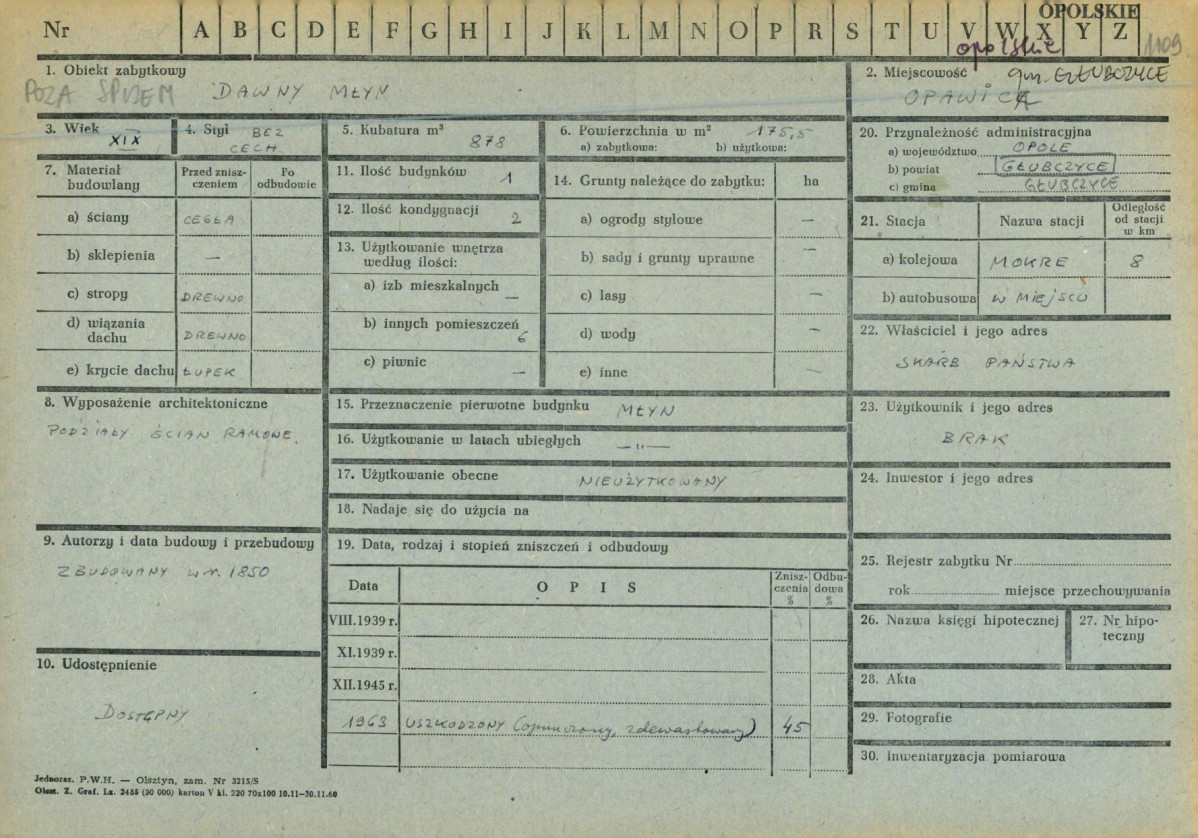 OPOLSKIE
Nr A B C D E F G H I J K L M N O P R S T U V W X Y Z
opolskie
1109
1. Obiekt zabytkowy
POZA SPISEM DAWNY MŁYN
2. Miejscowość gm. GŁUBCZYCE
OPAWICA
3. Wiek
XIX
4. Styl BEZ
CECH
5. Kubatura m³
878
6. Powierzchnia w m² 175,5
a) zabytkowa: b) użytkowa:
7. Materiał budowlany
Przed zniszczeniem
Po odbudowie
a) ściany CEGŁA
b) sklepienia —
c) stropy DREWNO
d) wiązania dachu DREWNO
e) krycie dachu ŁUPEK
8. Wyposażenie architektoniczne
PODZIAŁY ŚCIAN RAMOWE.
9. Autorzy i data budowy i przebudowy
ZBUDOWANY W R. 1850
10. Udostępnienie
DOSTĘPNY
11. Ilość budynków 1
12. Ilość kondygnacji 2
13. Użytkowanie wnętrza
według ilości:
a) izb mieszkalnych —
b) innych pomieszczeń 6
c) piwnic —
14. Grunty należące do zabytku: ha
a) ogrody stylowe —
b) sady i grunty uprawne —
c) lasy —
d) wody —
e) inne —
15. Przeznaczenie pierwotne budynku MŁYN
16. Użytkowanie w latach ubiegłych —„—
17. Użytkowanie obecne NIEUŻYTKOWANY
18. Nadaje się do użycia na
19. Data, rodzaj i stopień zniszczeń i odbudowy
Data OPIS Zniszczenia % Odbudowa %
VIII.1939 r.
XI.1939 r.
XII.1945 r.
1963 USZKODZONY (opuszczony, zdewastowany) 45
20. Przynależność administracyjna
a) województwo OPOLE
b) powiat GŁUBCZYCE
c) gmina GŁUBCZYCE
21. Stacja Nazwa stacji Odległość od stacji w km
a) kolejowa MOKRE 8
b) autobusowa W MIEJSCU
22. Właściciel i jego adres
SKARB PAŃSTWA
23. Użytkownik i jego adres
BRAK
24. Inwestor i jego adres
25. Rejestr zabytku Nr
rok miejsce przechowywania
26. Nazwa księgi hipotecznej
27. Nr hipoteczny
28. Akta
29. Fotografie
30. Inwentaryzacja pomiarowa
Jednoraz. P.W.H. — Olsztyn, zam. Nr 3215/S
Olszt. Z. Graf. Lz. 2485 (30 000) karton V kl. 220 70x100 10.11-30.11.60